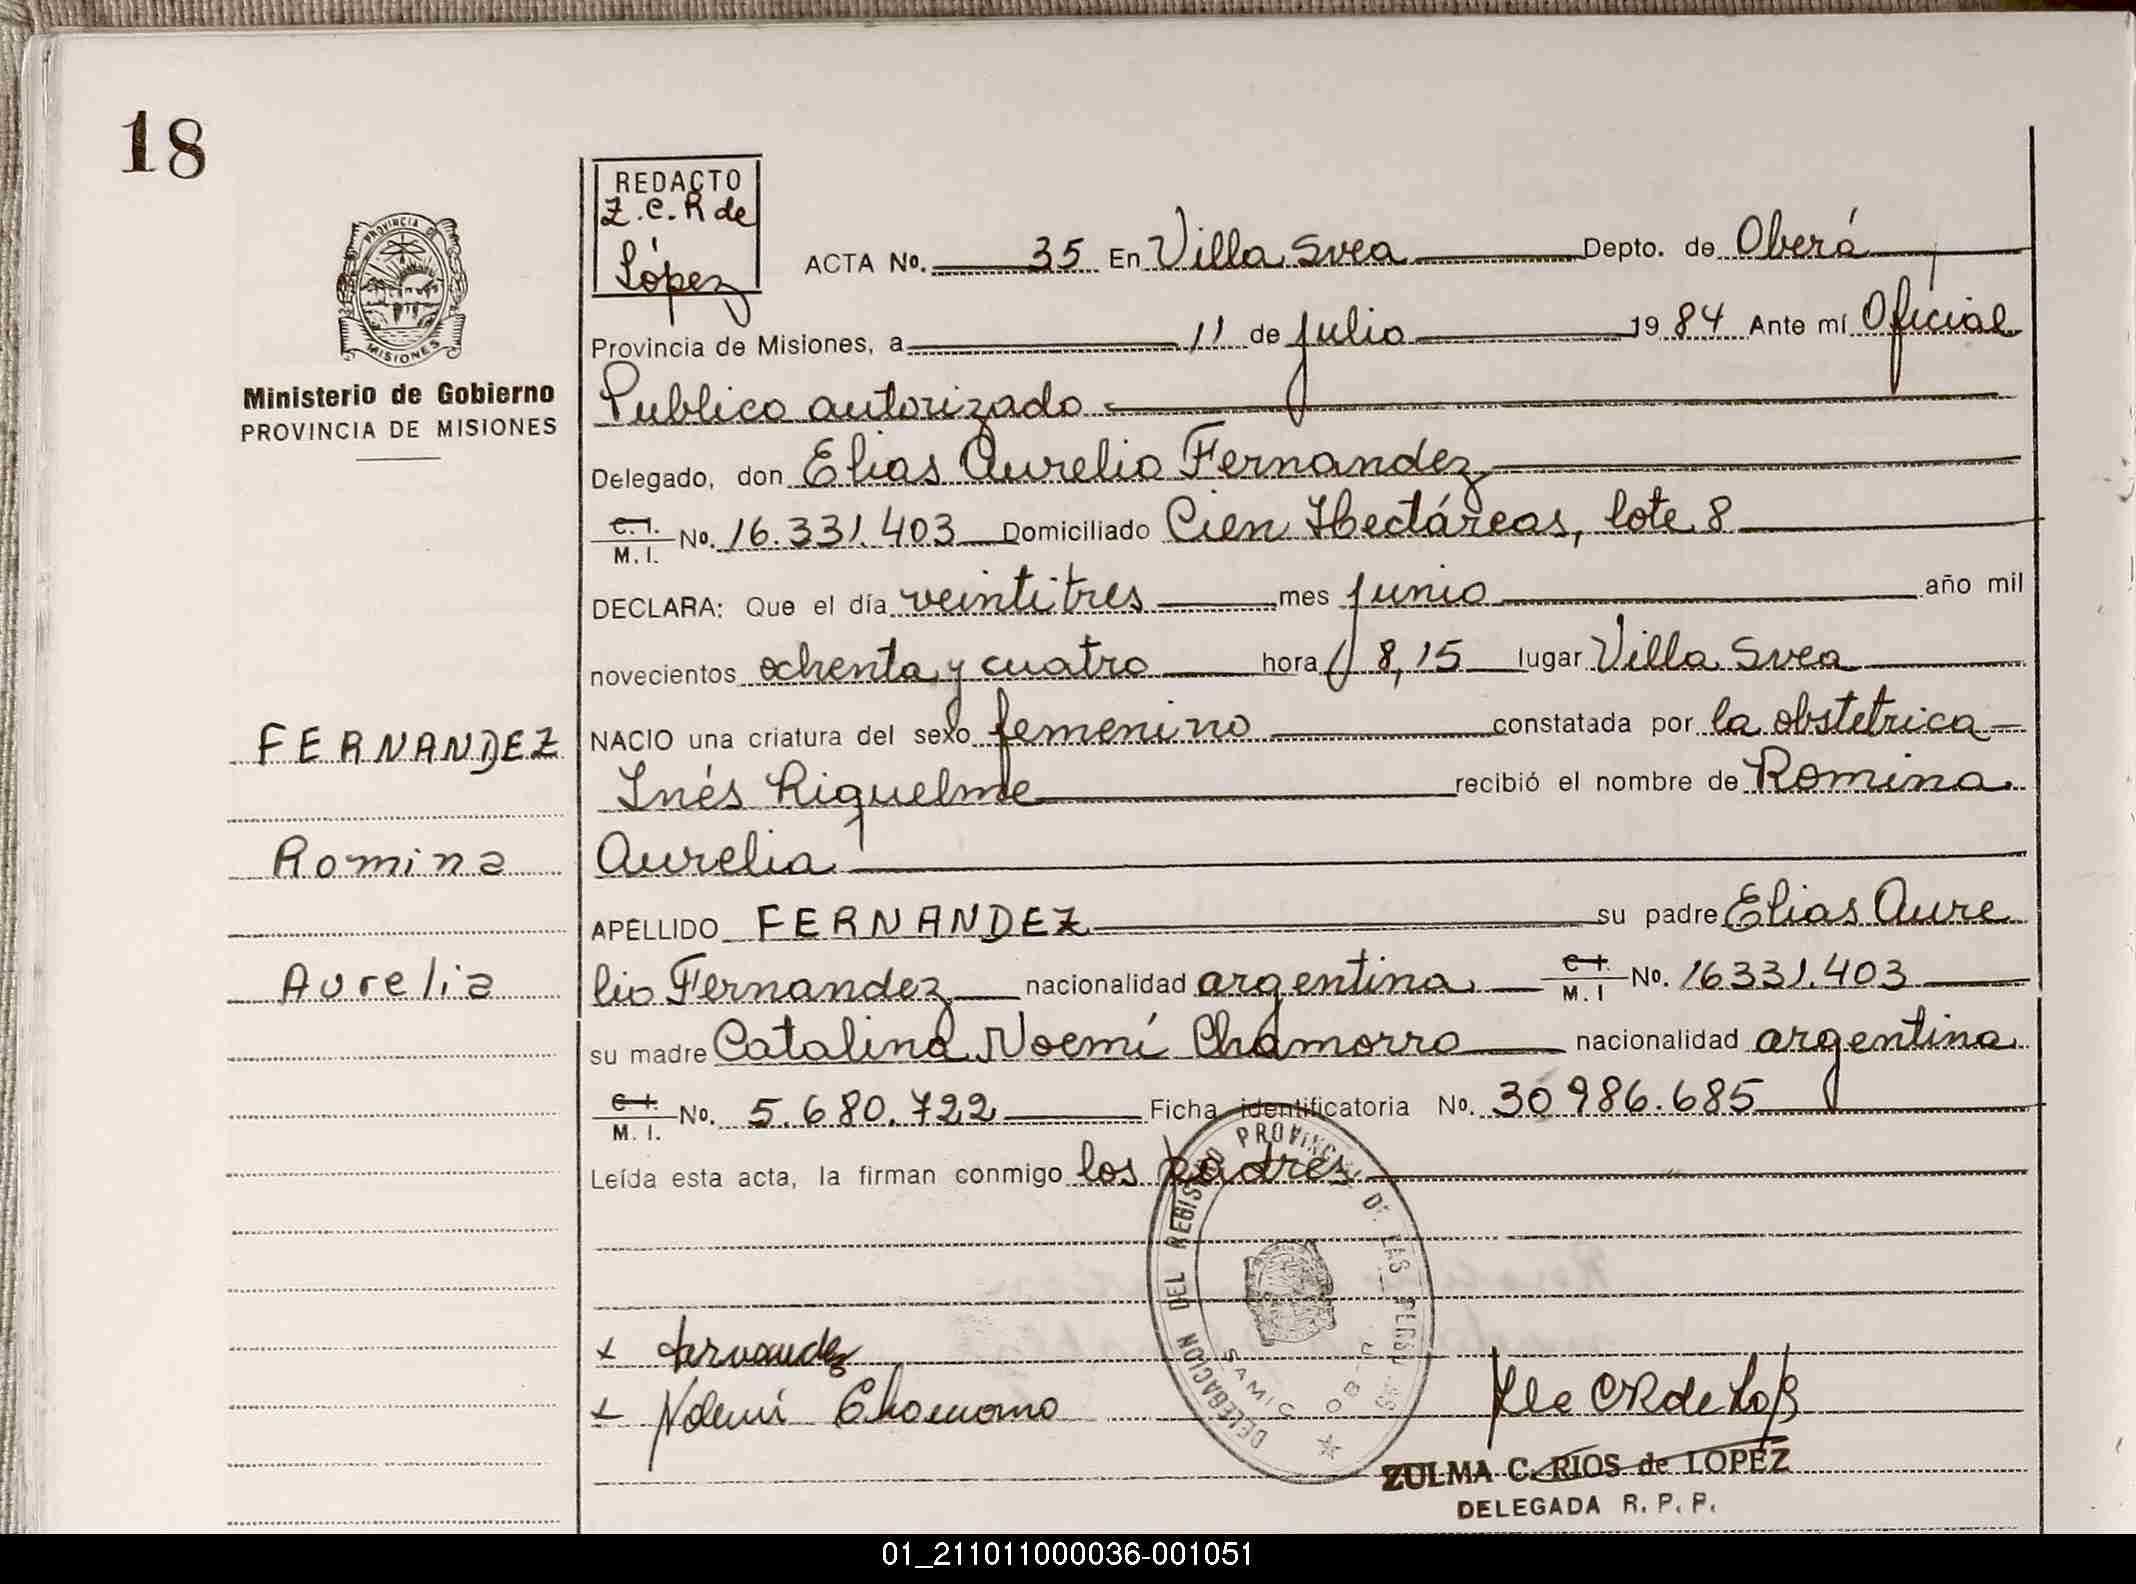 18
PROVINCIA DE
MISIONES
Ministerio de Gobierno
PROVINCIA DE MISIONES
FERNANDEZ
Romina
Aurelia
REDACTO
Z.C.R de
López
ACTA No. 35 En Villa Svea Depto. de Oberá
Provincia de Misiones, a 11 de julio 1984 Ante mí Oficial
Publico autorizado
Delegado, don Elias Aurelio Fernandez
C.I. M.I. No. 16.331.403 Domiciliado Cien Hectáreas, lote 8
DECLARA: Que el día veintitres mes junio año mil
novecientos ochenta y cuatro hora 8,15 lugar Villa Svea
NACIO una criatura del sexo femenino constatada por la obstetrica
Inés Riquelme recibió el nombre de Romina
Aurelia
APELLIDO FERNANDEZ su padre Elias Aure
lio Fernandez nacionalidad argentina C.I. M.I No. 16331.403
su madre Catalina Noemí Chamorro nacionalidad argentina
C.I. M.I. No. 5.680.722 Ficha identificatoria No. 30986.685
Leída esta acta, la firman conmigo los padres
DELEGACION DEL REGISTRO PROVINCIAL DE LAS PERSONAS
SAMIC OBERA
x Fernandez
x Noemí Chamorro
ZULMA C. RIOS de LOPEZ
DELEGADA R. P. P.
01_211011000036-001051